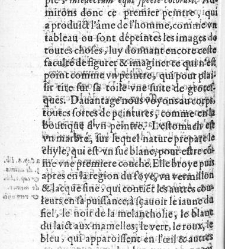 mirons donc ce premier peintre, qui
a produict l'ame de l'homme, comme vn
tableau ou sont dépeintes les images de
toutes choses, luy donnant encore ceste
faculté de figurer & imaginer ce qui n'est
point comme vn peintre, qui pour plai-
sir tire sur sa toile vne suite de grotes-
ques. Dauantage nous voyons au corps
toutes sortes de peintures, comme en la
boutique d'vn peintre. L'estomach est
vn marbre, sur lequel nature prepare le
chyle, qui est vn suc blanc, pour estre co-
me vne premiere couche. Elle broye puis
apres en la region du foye, vn vermillon
& lacque fine, qui contiét les autres cou-
leurs en sa puissance, sçauoir le iaune du
fiel, le noir de la melancholie, le blanc
du laict aux mamelles, le verr, le roux, le
bleu, qui apparoissent en l'œil & autres